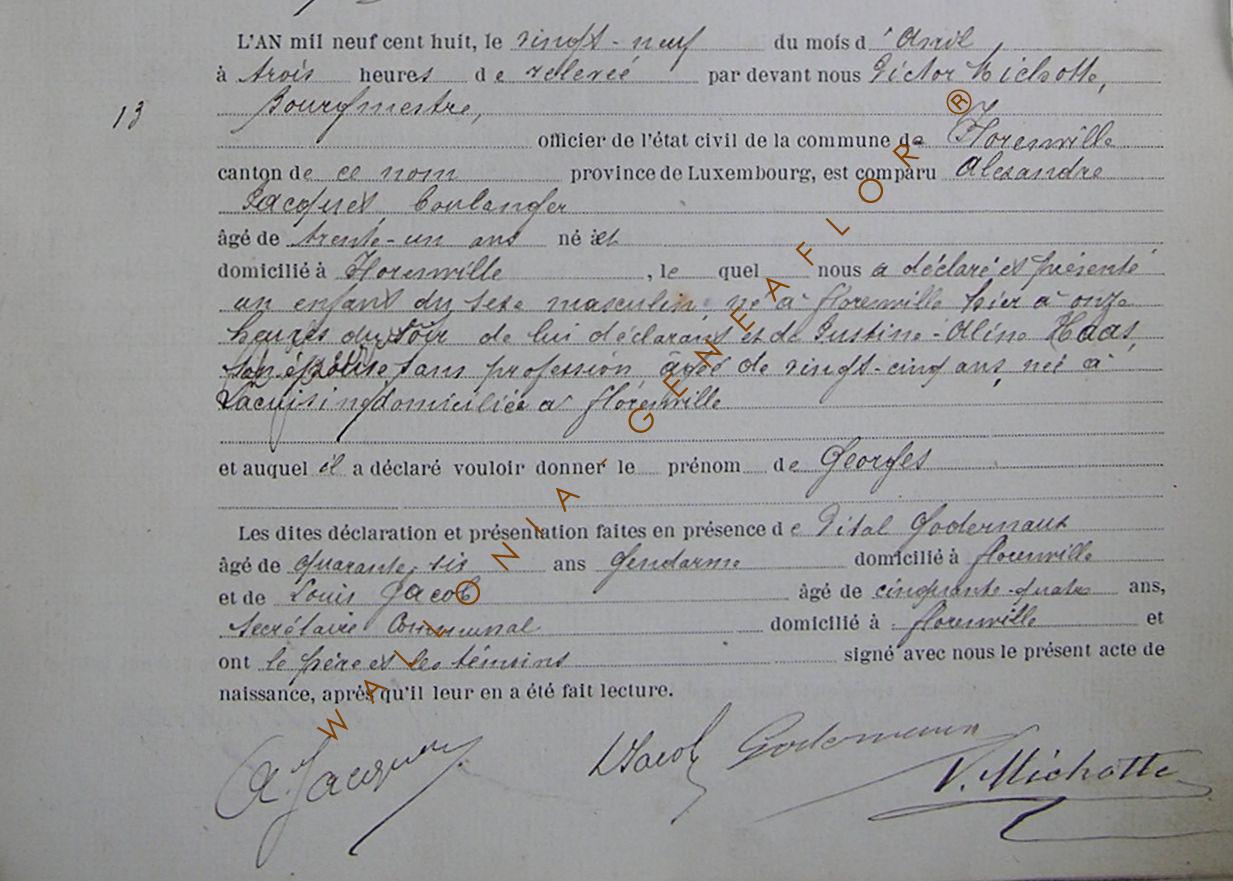 L'AN mil neuf cent huit, le vingt-neuf du mois d'Avril,
à trois heures de relevée par devant nous Victor Michotte,
13
Bourgmestre,
officier de l'état civil de la commune de Florenville
canton de ce nom province de Luxembourg, est comparu Alexandre
Jacques, boulanger
âgé de trente-un ans né à et
domicilié à Florenville, lequel nous a déclaré et présenté
un enfant du sexe masculin, né à florenville hier à onze
heures du soir de lui déclarant et de Justine-Aline Haas,
son épouse sans profession, âgée de vingt-cinq ans, née à
Lacuisine domiciliée à florenville
et auquel il a déclaré vouloir donner le prénom de Georges
Les dites déclaration et présentation faites en présence de Vital Godernaux
âgé de quarante-six ans gendarme domicilié à florenville
et de Louis Jacob âgé de cinquante-quatre ans,
secrétaire communal domicilié à florenville et
ont le père et les témoins signé avec nous le présent acte de
naissance, après qu'il leur en a été fait lecture.
A. Jacques LJacob Godernaux V. Michotte
WALLONIA - GENEAFLOR ®